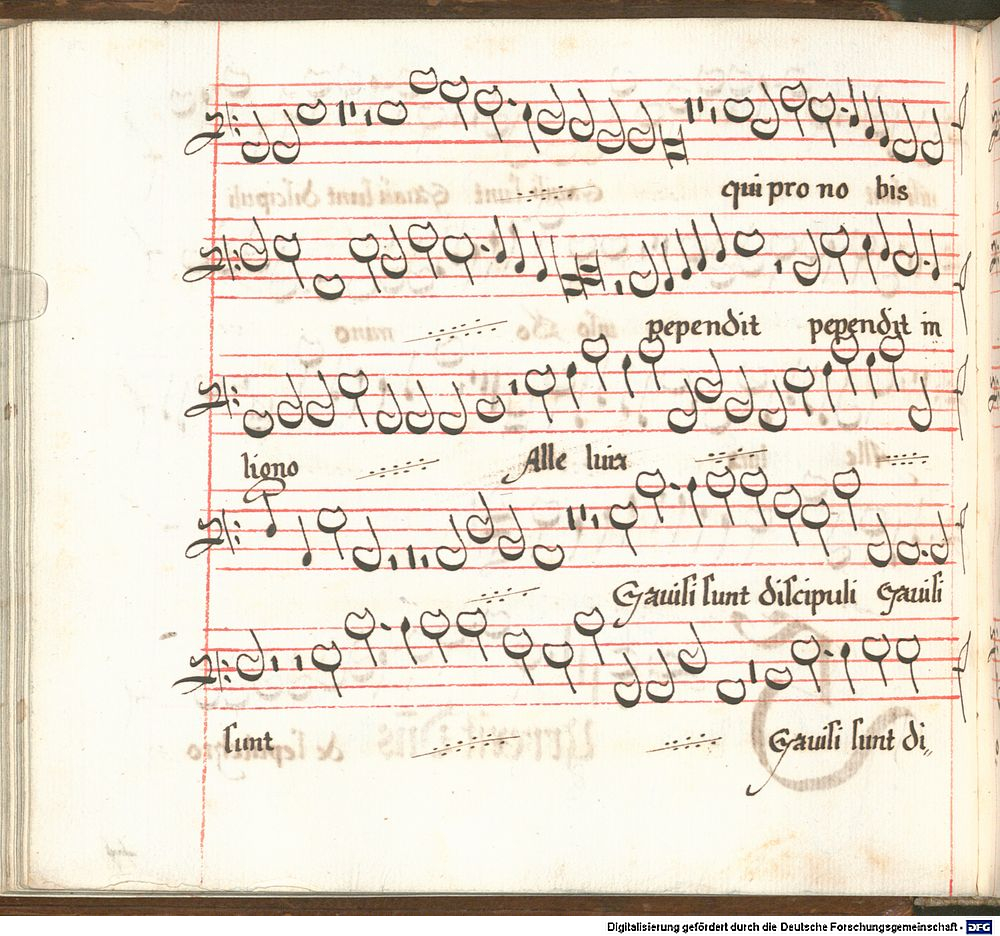 qui pro no bis
pependit pependit in
ligno Alle luia
Gauisi sunt discipuli Gauisi
sunt Gauisi sunt di„
Digitalisierung gefördert durch die Deutsche Forschungsgemeinschaft - DFG